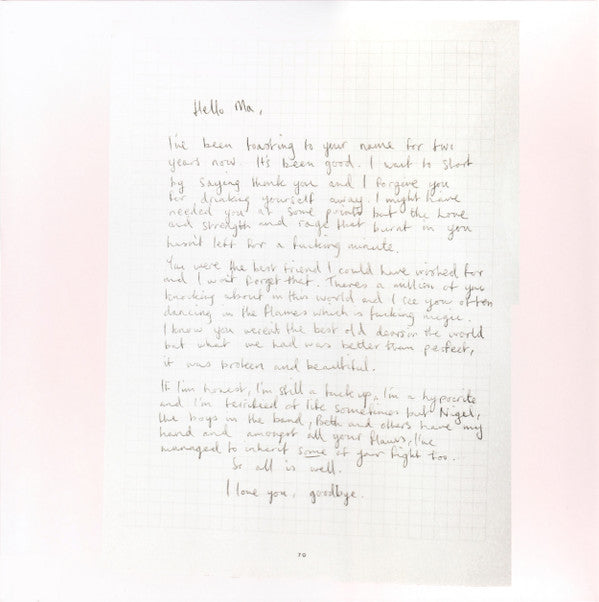 Hello Ma,
I've been toasting to your name for two
years now. It's been good. I want to start
by saying thank you and I forgive you
for drinking yourself away. I might have
needed you at some points but the love
and strength and rage that burnt in you
hasn't left for a fucking minute.
You were the best friend I could have wished for
and I won't forget that. Theres a million of you
knocking about in this world and I see you often
dancing in the flames which is fucking magic.
I know you werent the best old dear in the world
but what we had was better than perfect,
it was broken and beautiful.
If I'm honest, I'm still a fuck up, I'm a hypocrite
and I'm terrified of life sometimes but Nigel,
the boys in the band, Beth and others have my
hand and amongst all your flaws, I've
managed to inherit some of your fight too.
So all is well.
I love you, goodbye.